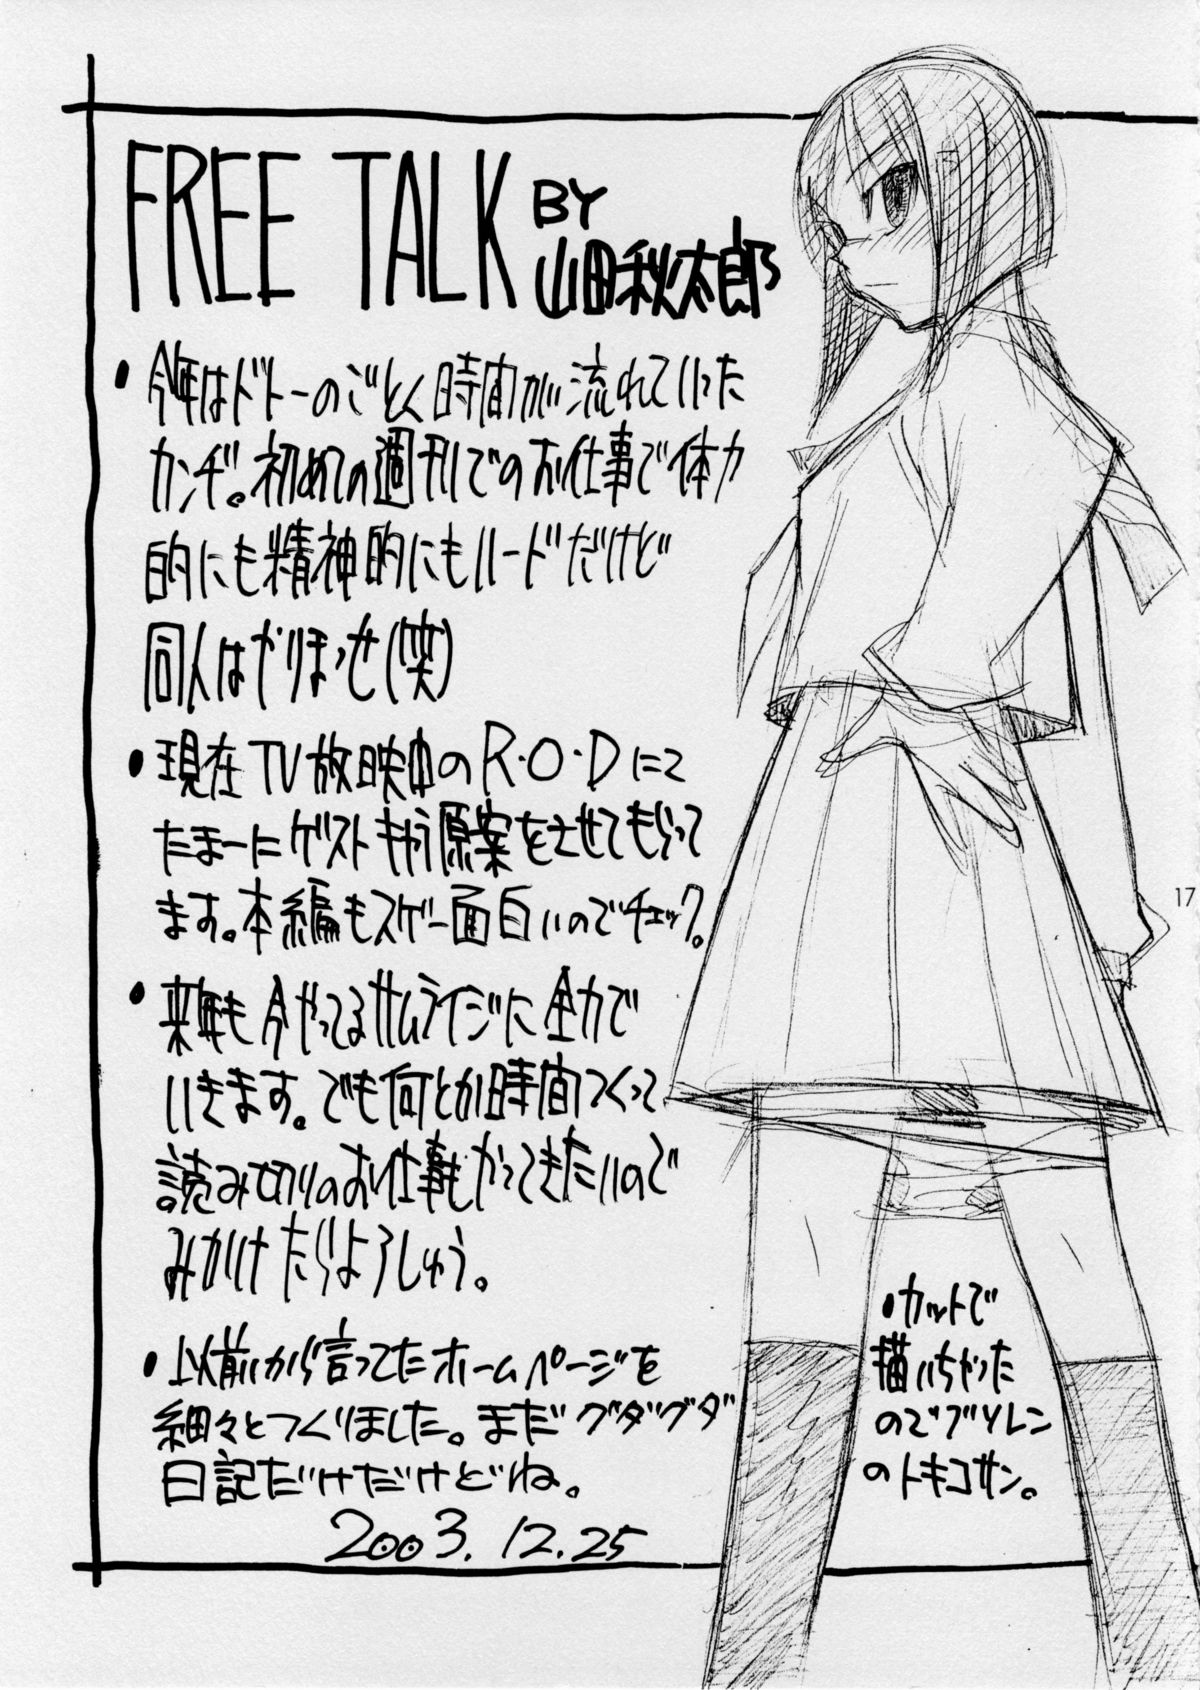 FREE TALK
BY
山田秋太郎
・今年はドトーのごとく時間が流れていった
カンヂ。初めての週刊でのお仕事で体力
的にも精神的にもハードだけど
同人はやりまっせ(笑)
・現在TV放映中のR・O・Dにて
たまーにゲストキャラ原案をさせてもらって
ます。本編もスゲー面白いのでチェック。
・来年も今やってるサムライジに全力で
いきます。でも何とか時間つくって
読み切りのお仕事もやってきたいので
みかけたらよろしゅう。
・以前から言ってたホームページを
細々とつくりました。まだグダグダ
日記だけだけどね。
2003.12.25
・カットで
描いちゃった
のでプリレン
のトキコサン。
17